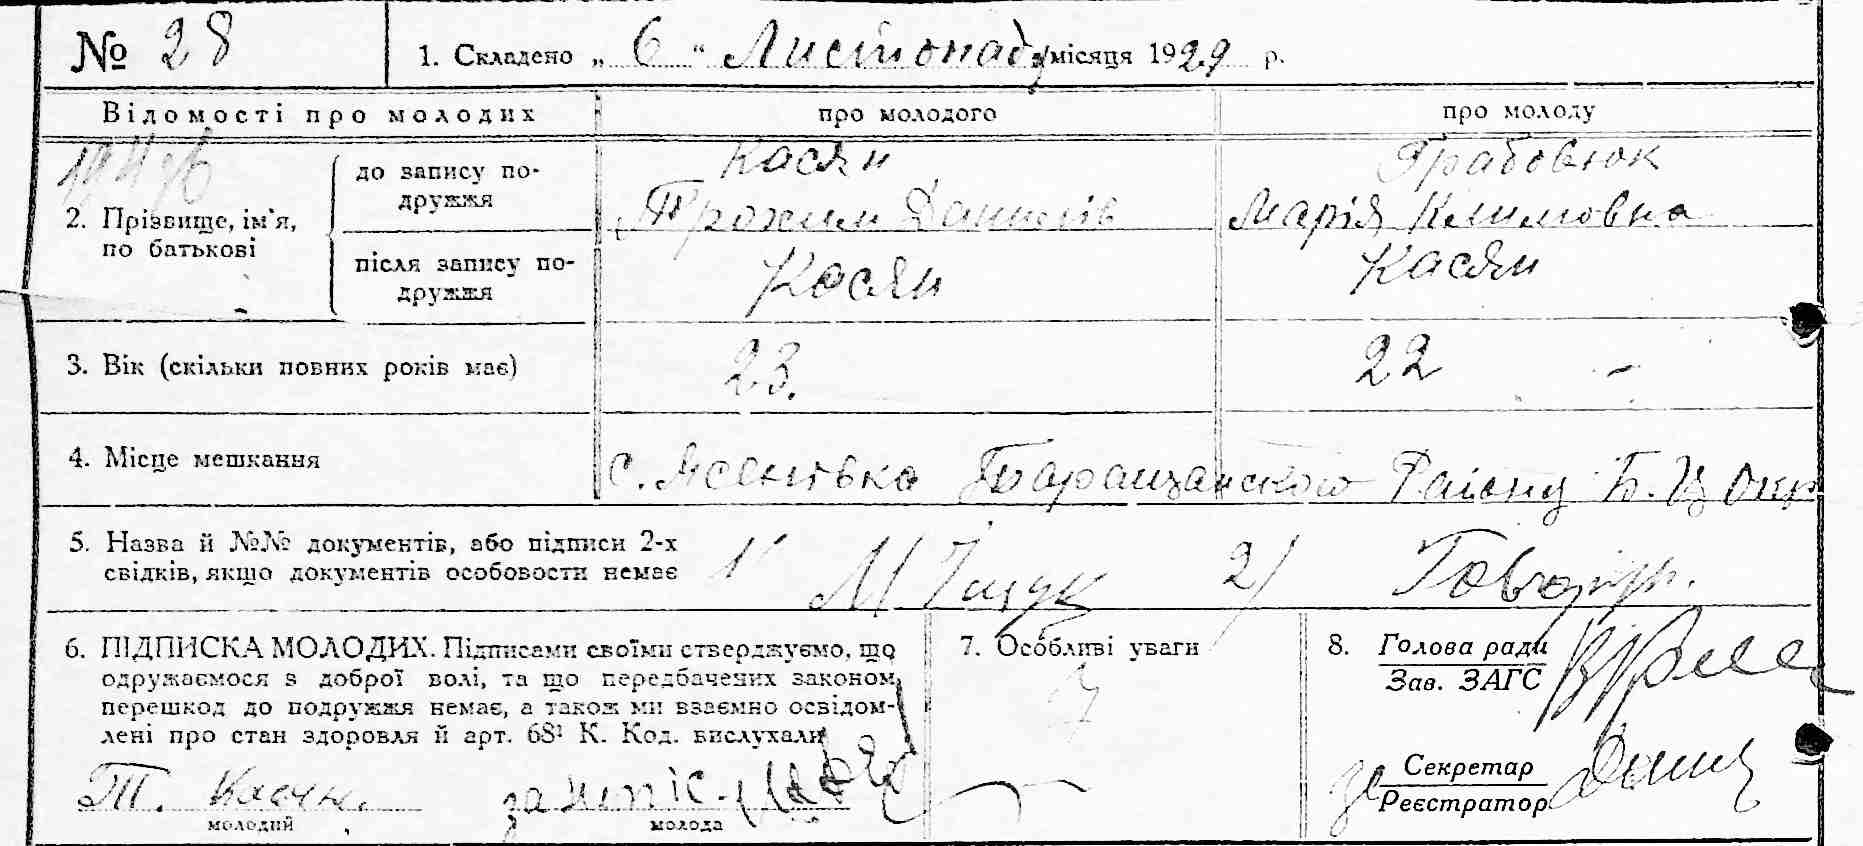 № 28
1. Складено „ 6 “ Листопаду місяця 1929 р.
Відомості про молодих
про молодого
про молоду
2. Прізвище, ім'я, по батькові
до запису по-
дружжя
Касян
Трохим Данилів
Грабовюк
Марія Климовна
після запису по-
дружжя
Касян
Касян
3. Вік (скільки повних років має)
23.
22
4. Місце мешкання
с. Ясенівка Таращанского Раіону Б. Ц Окр
5. Назва й №№ документів, або підписи 2-х
свідків, якщо документів особовости немає
1
М Іщук
2/
6. ПІДПИСКА МОЛОДИХ. Підписами своїми стверджуємо, що
одружаємося з доброї волі, та що передбачених законом
перешкод до подружжя немає, а також ми взаємно освідом-
лені про стан здоровля й арт. 68¹ К. Код. вислухали
Т. Касян.
молодий
за непіс.
молода
7. Особливі уваги
8. Голова ради
Зав. ЗАГС
за
Секретар
Реєстратор